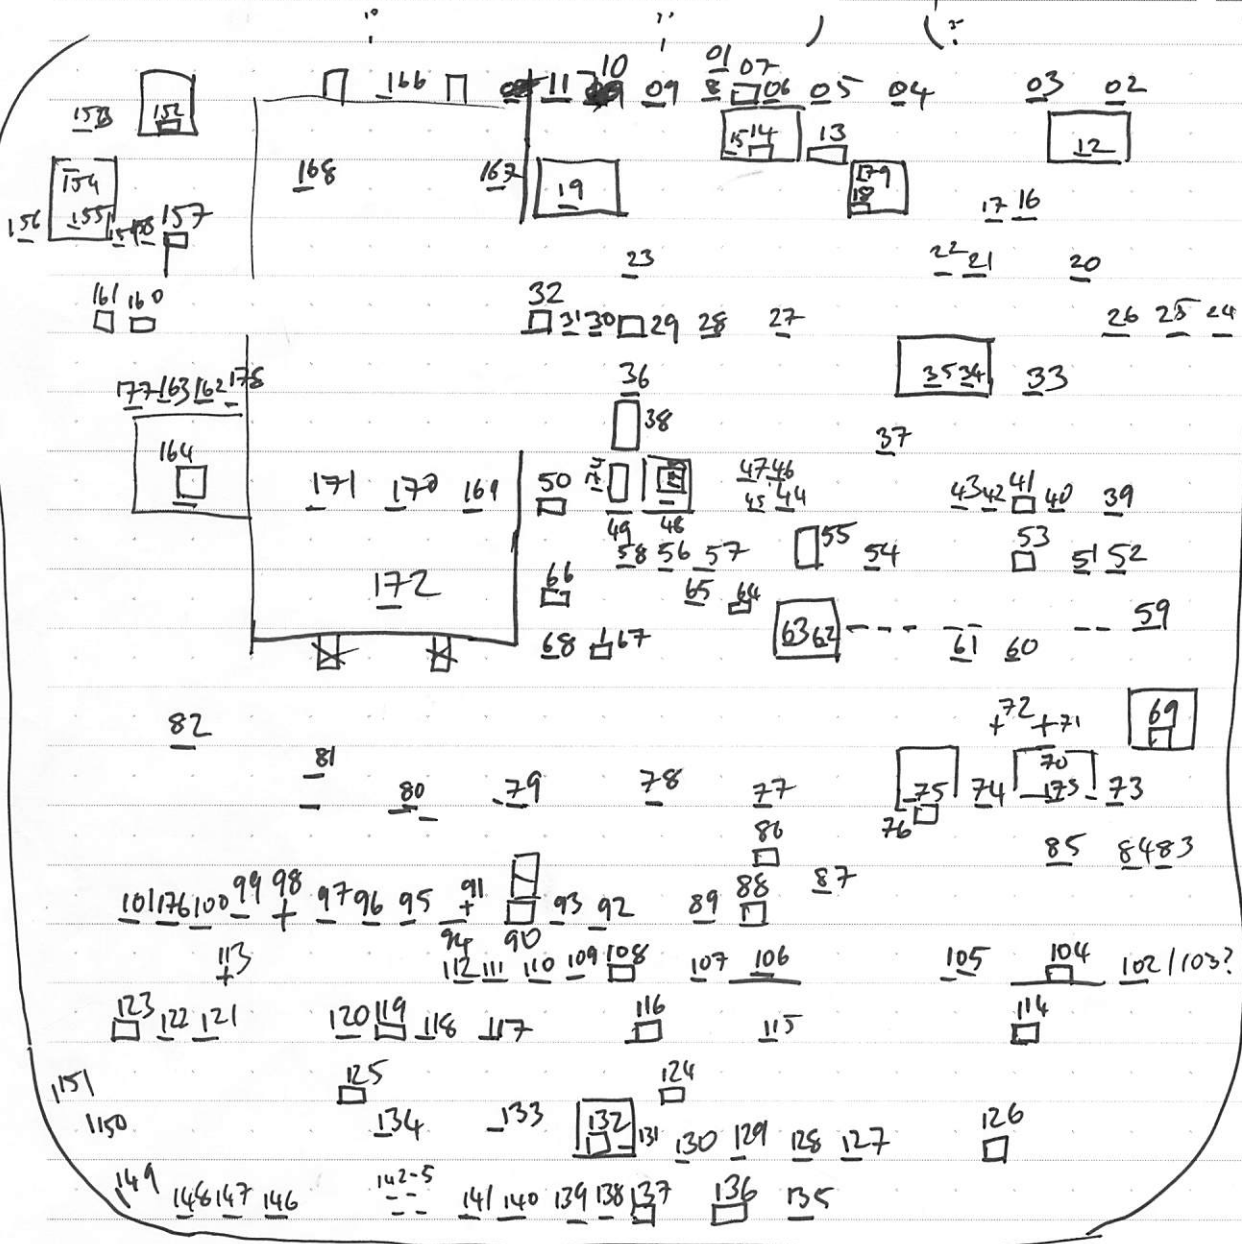 01
10 07
166 11 09 8 06 05 04 03 02
153 152
15 14 13 12
154 168 167 19 179
18
156 155 158 157 17 16
23 22 21 20
161 160 32
31 30 29 28 27 26 25 24
177 163 162 178 36 35 34 33
38
164 37
171 170 169 50 47 46 43 42 41 40 39
45 44
49 48
58 56 57 55 54 53 51 52
172 66 65 64
68 67 63 62 61 60 59
82 72 71 69
81 70
80 79 78 77 75 74 175 73
76
86 85 84 83
101 176 100 99 98 97 96 95 91 93 92 89 88 87
94 90
113 112 111 110 109 108 107 106 105 104 102/103?
123 122 121 120 119 118 117 116 115 114
151 125 124
150 134 133 132 131 130 129 128 127 126
149 148 147 146 142-5 141 140 139 138 137 136 135